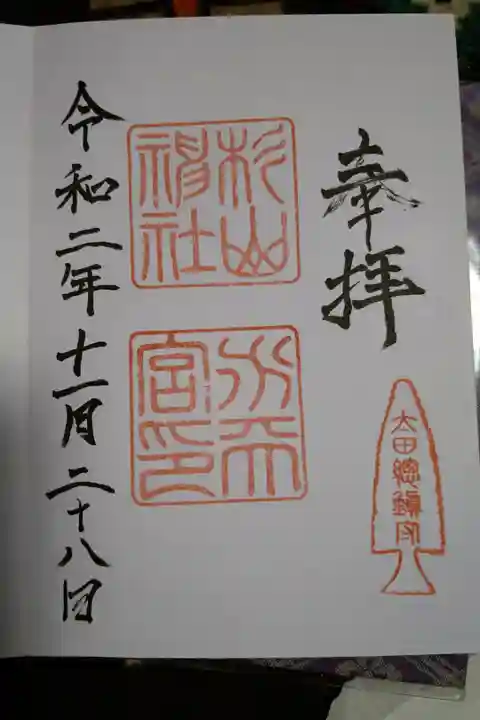 奉拝
太田總鎮守
杉山
神社
水天
宮印
令和二年十一月二十八日